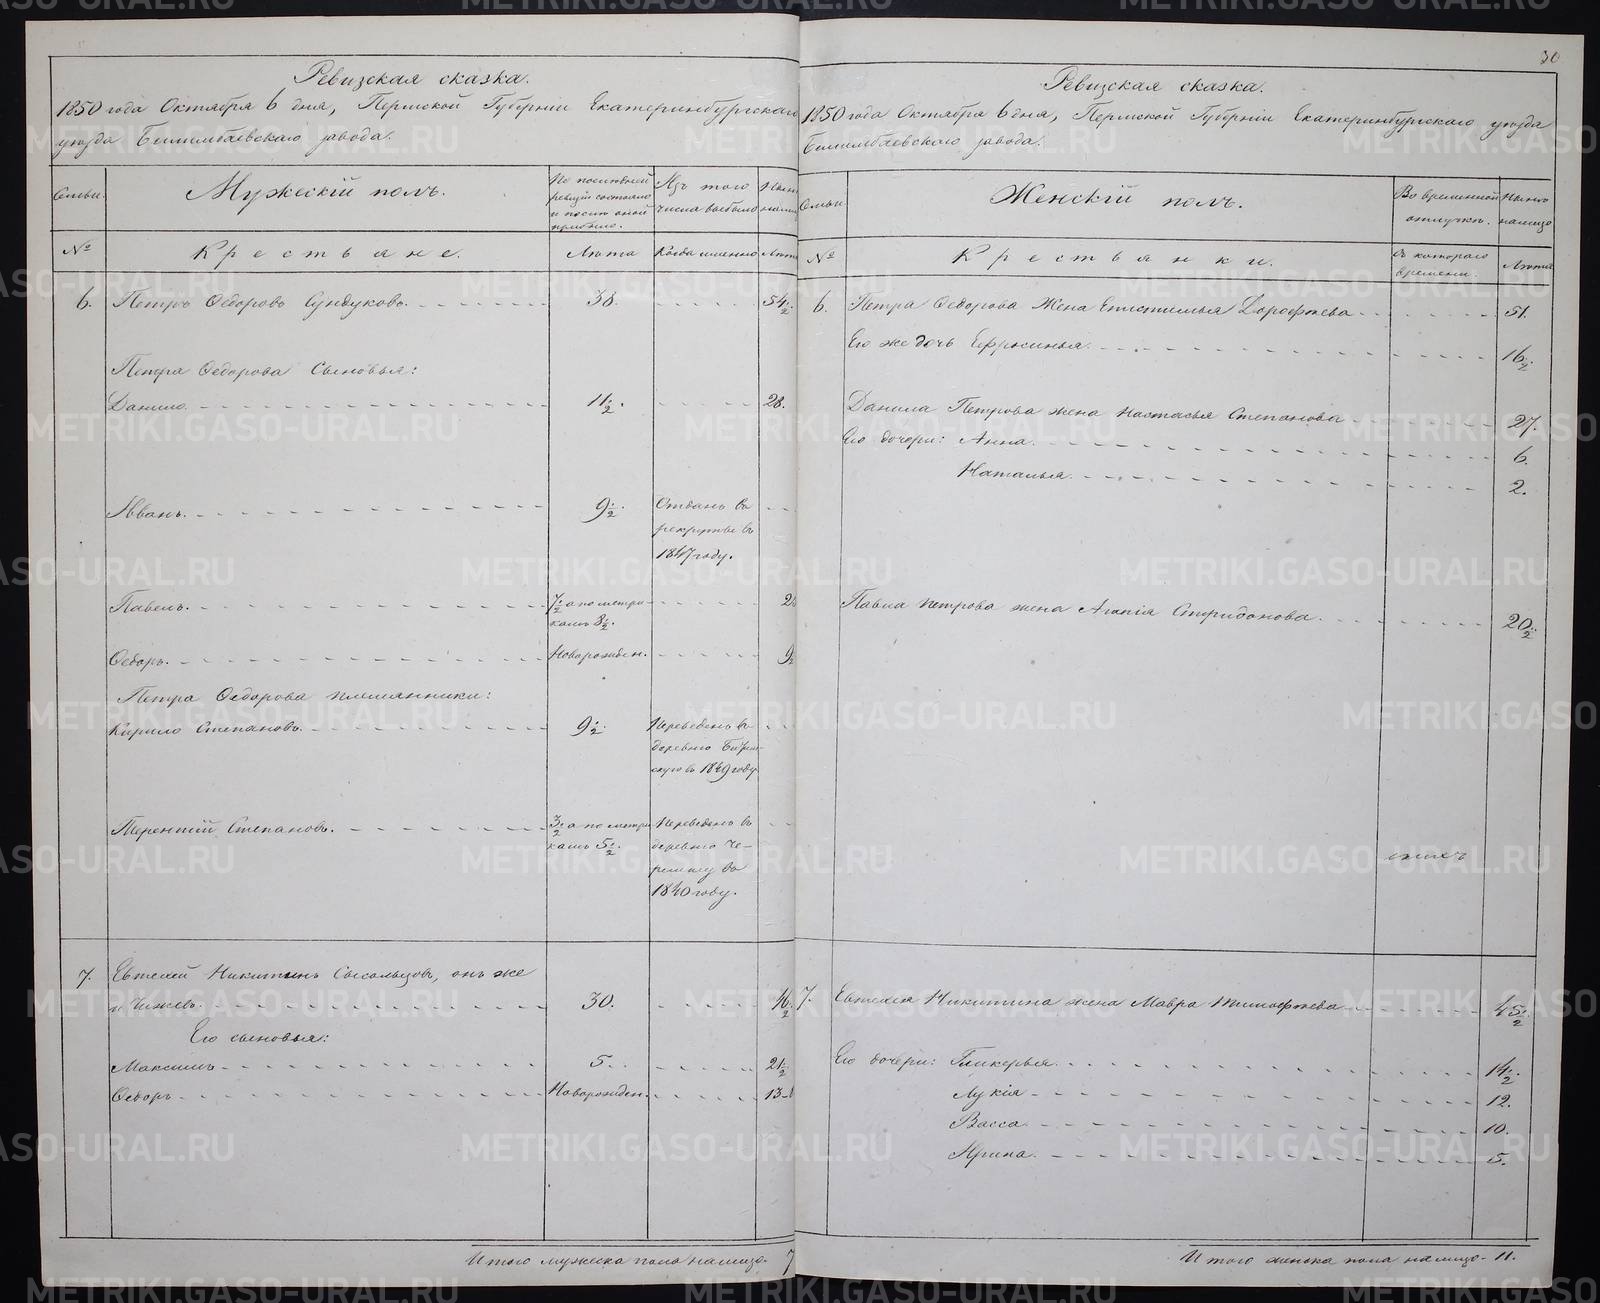 Ревизская сказка.
1850 года Октября 6 дня, Пермской Губерніи Екатеринбургскаго
уѣзда Билимбаевскаго завода.
Семьи.
Мужескій полъ.
По послѣдней
ревизіи состояло
и послѣ оной
прибыло.
Изъ того
числа выбыло
Нынѣ
№
Крестьяне.
Лѣта
Когда именно
Лѣта
6. Петръ Ѳедоровъ Сундуковъ. 38. 54½
Петра Ѳедорова Сыновья:
Данило. 11½. 28.
Иванъ. 9½. Отданъ въ
рекруты въ
1847 году.
Павелъ. 7½ а по метри-
камъ 8½.
Ѳедоръ. Новорожден. 9½
Петра Ѳедорова племянники:
Кирило Степановъ. 9½. Переведенъ въ
деревню
в 1849 году
Терентій Степановъ. 3½ а по метри
камъ 5½. Переведенъ въ
деревню Че-
решу въ
1840 году.
7. Евтехей Никитинъ Сысольцовъ, онъ же
и Чижевъ. 30. 46½
Его сыновья:
Максимъ 5. 21½
Ѳедоръ Новорожден. 13
Итого мужеска пола налицо 7
30
Ревизская сказка.
1850 года Октября 6 дня, Пермской Губерніи Екатеринбургскаго уѣзда
Билимбаевскаго завода.
Семьи.
Женскій полъ.
Во временной
отлучкѣ.
Нынѣ
налицо
№
Крестьянки.
Съ котораго
времени.
Лѣта
6. Петра Ѳедорова Жена Епистимья Дорофѣева 51.
Его же дочь Ефросинья. 16½.
Данила Петрова жена Настасья Степанова 27.
Его дочери: Анна. 6.
Наталья. 2.
Павла Петрова жена Агапія Спиридонова. 20½.
7. Евтехея Никитина жена Мавра Тимофѣева 45½
Его дочери: Гликерья. 14½.
Лукія 12.
Васса 10.
Ирина. 5.
Итого женска пола налицо 11.
METRIKI.GASO-URAL.RU